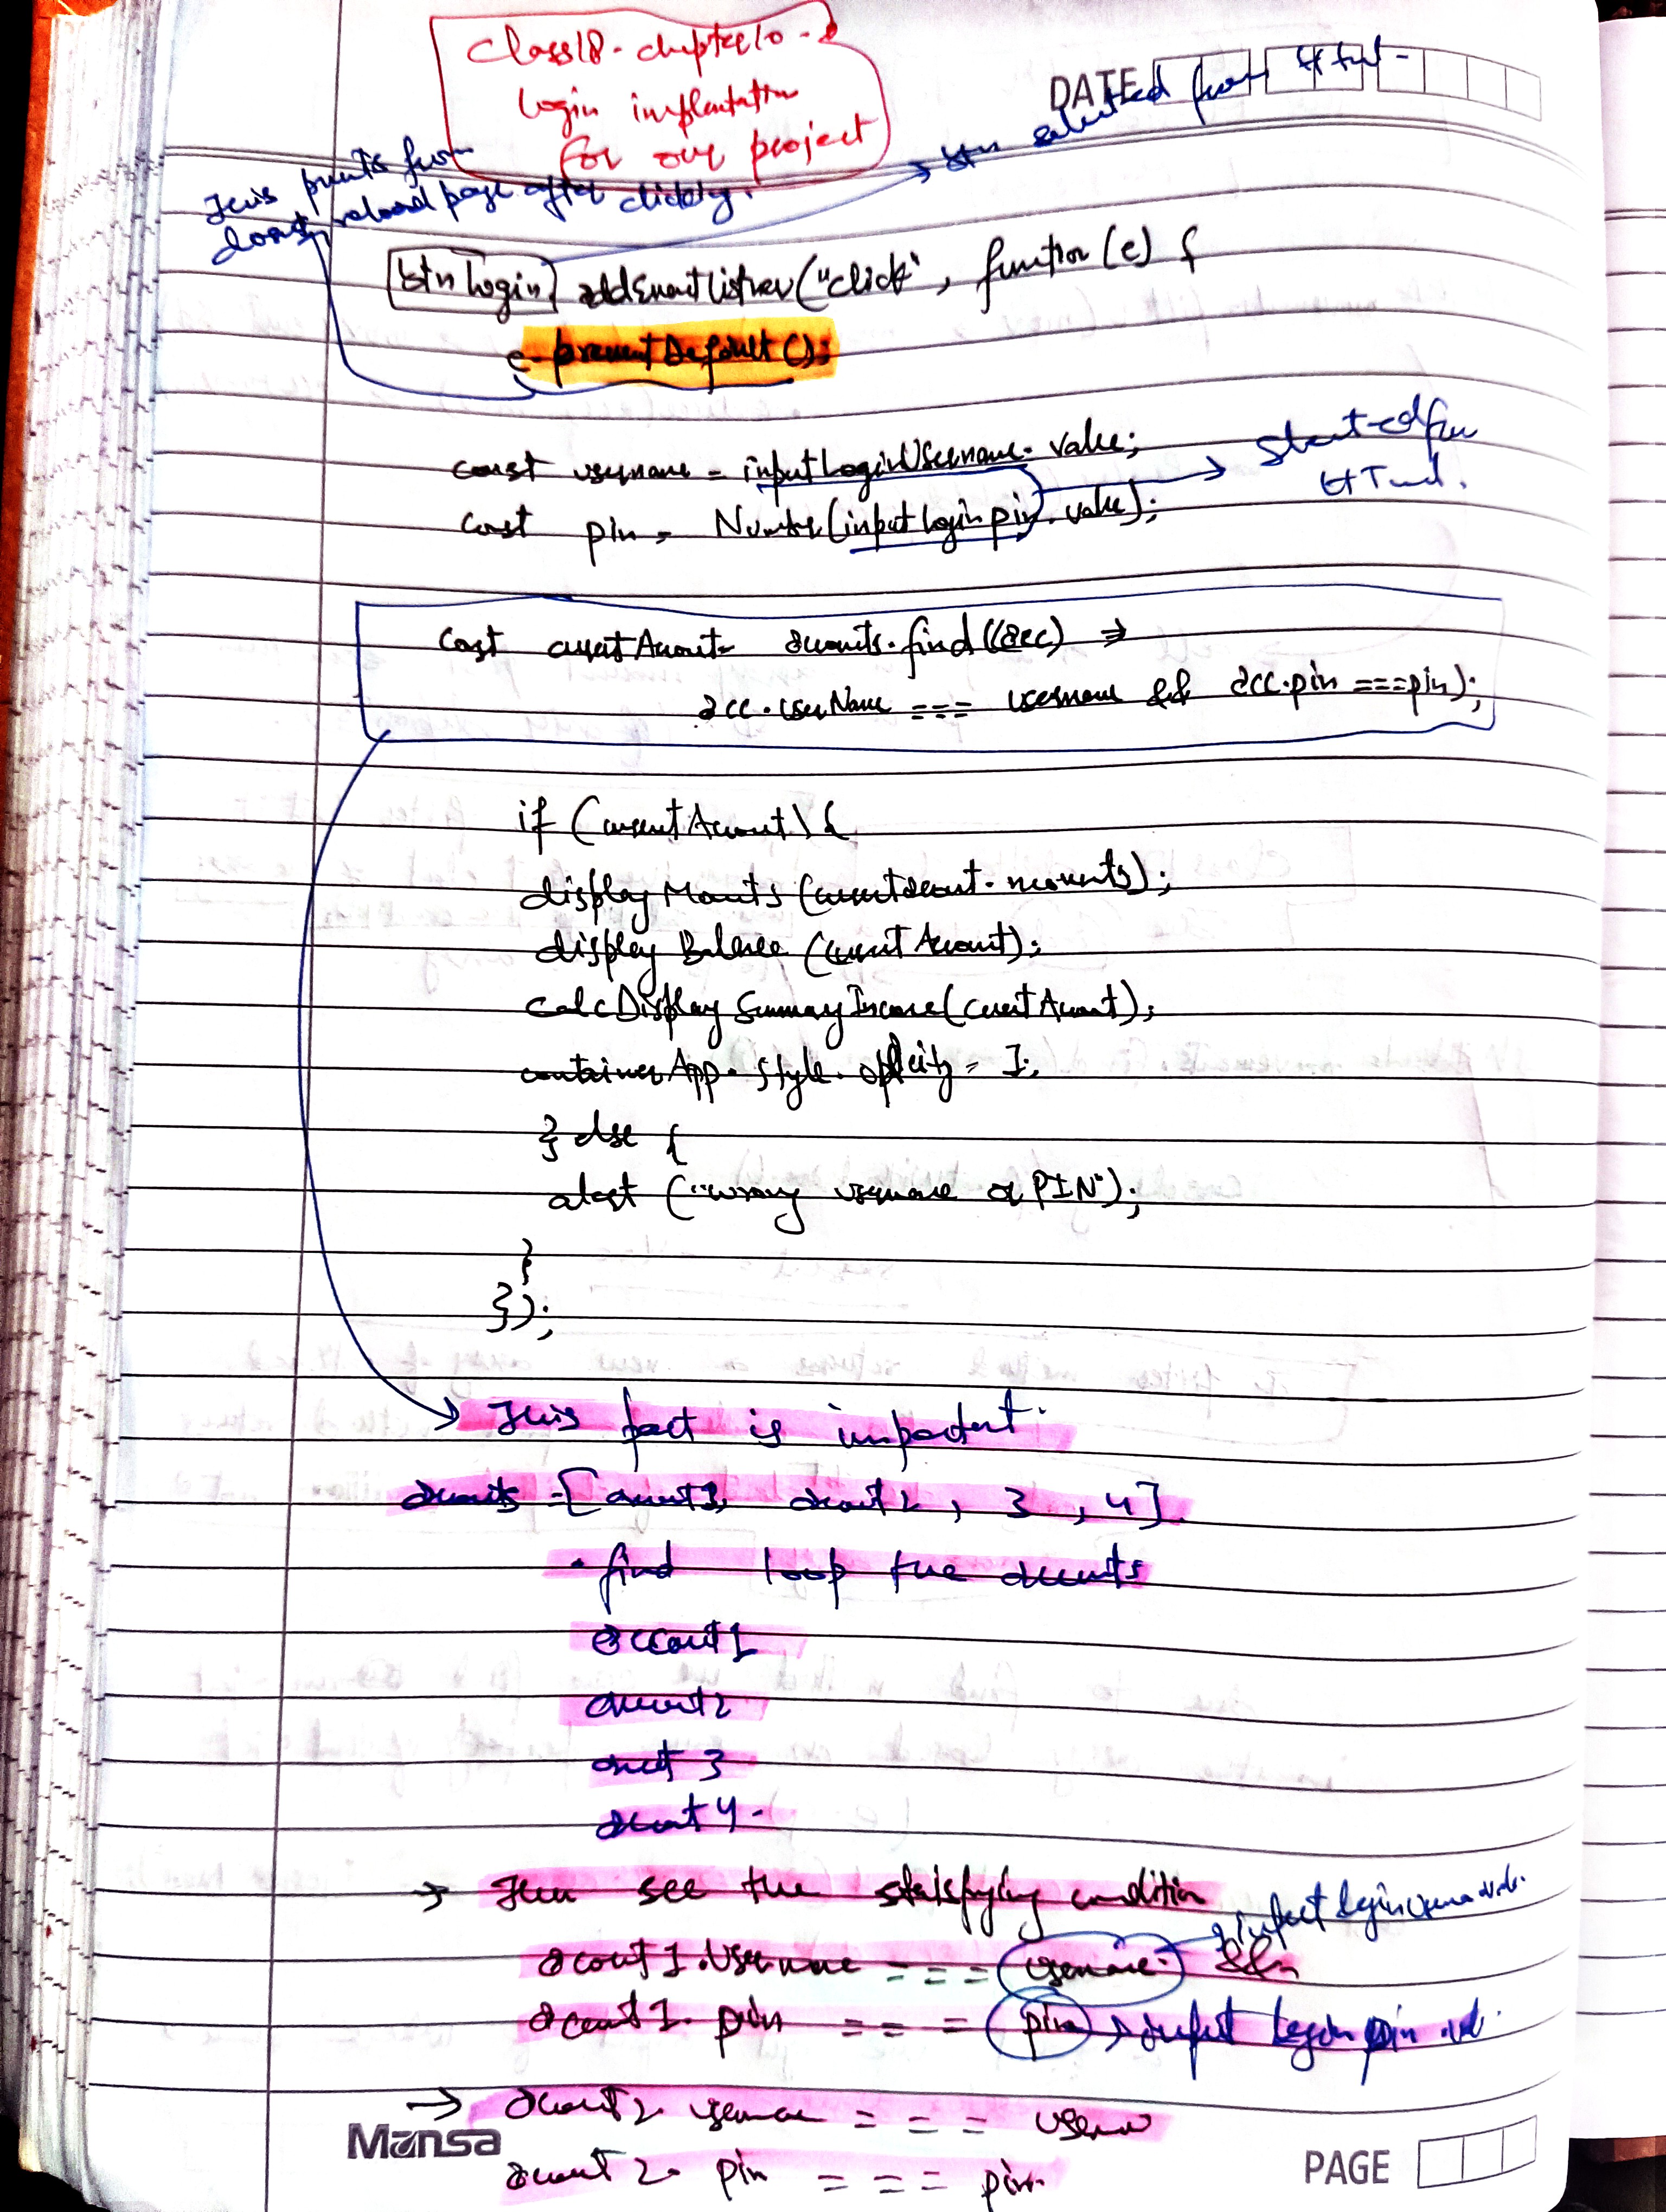 Class18. chapter10 -
login implantation
for our project
DATE
btn selected from Html -
This prvents from
dont reload page after clicking.
btnLogin. addEventListner("click", function(e) {
e.preventDefault();
const username = inputLoginUsername.value;
const pin = Number(inputLoginpin.value);
const currentAccount = accounts.find((acc) =>
acc.userName === username && acc.pin === pin);
if (currentAccount) {
display Movents (currentAccount. movements);
display Balance (currentAccount);
calcDisplay SummaryIncome(currentAccount);
containerApp. style. opacity = 1;
} else {
alert ("wrong username or PIN");
}
});
→ This part is important.
accounts = [account1, account2, 3, 4].
.find loop the accounts
account1
account2
account3
account4.
→ Then see the statisfying condition
account1.Username === username. && 
account1. pin === pin → input login pin .val.
→ account2 username === username
account2. pin === pin.
Mansa
PAGE